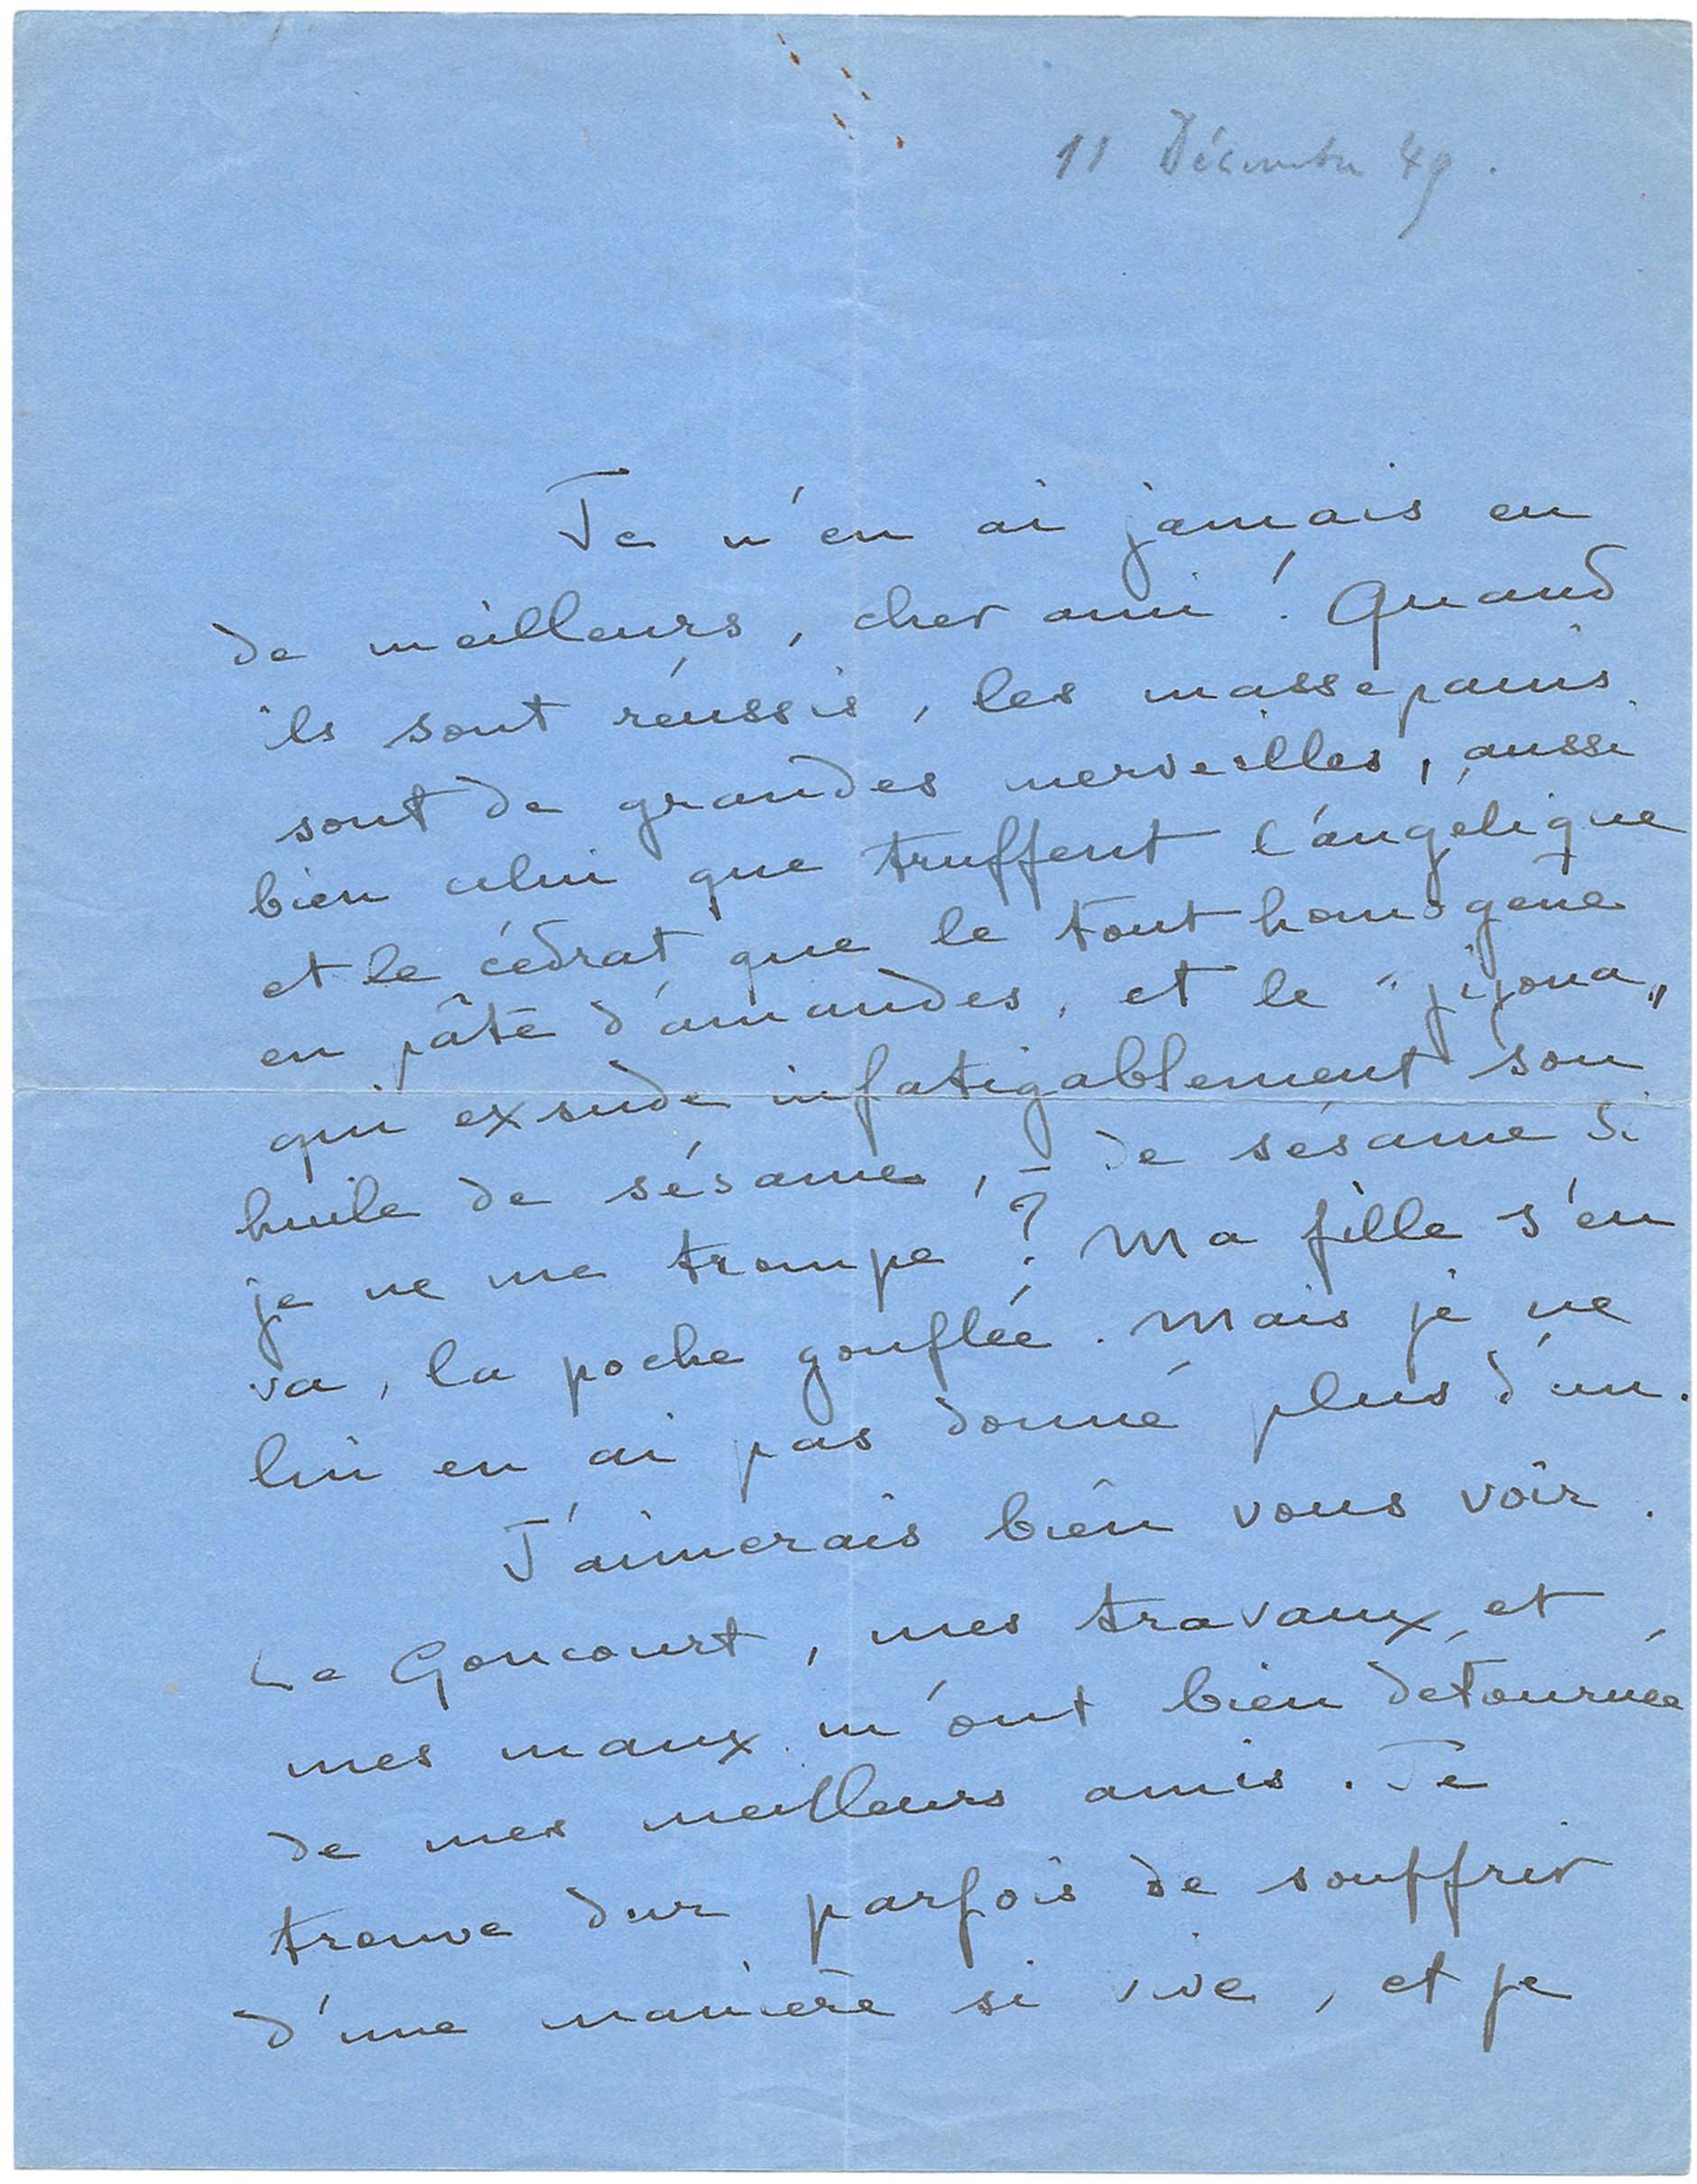 11 Décembre 49.
Je n'en ai jamais eu
de meilleurs, cher ami ! Quand
ils sont réussis, les massepains
sont de grandes merveilles, aussi
bien celui que truffent l'angélique
et le cédrat que le tout homogène
en pâte d'amandes, et le "jijona"
qui exsude infatigablement son
huile de sésame, – de sésame si
je ne me trompe ? Ma fille s'en
va, la poche gonflée. Mais je ne
lui en ai pas donné plus d'un.
J'aimerais bien vous voir.
Le Goncourt, mes travaux et
mes maux m'ont bien détournée
de mes meilleurs amis. Je
trouve dur parfois de souffrir
d'une manière si vive, et je